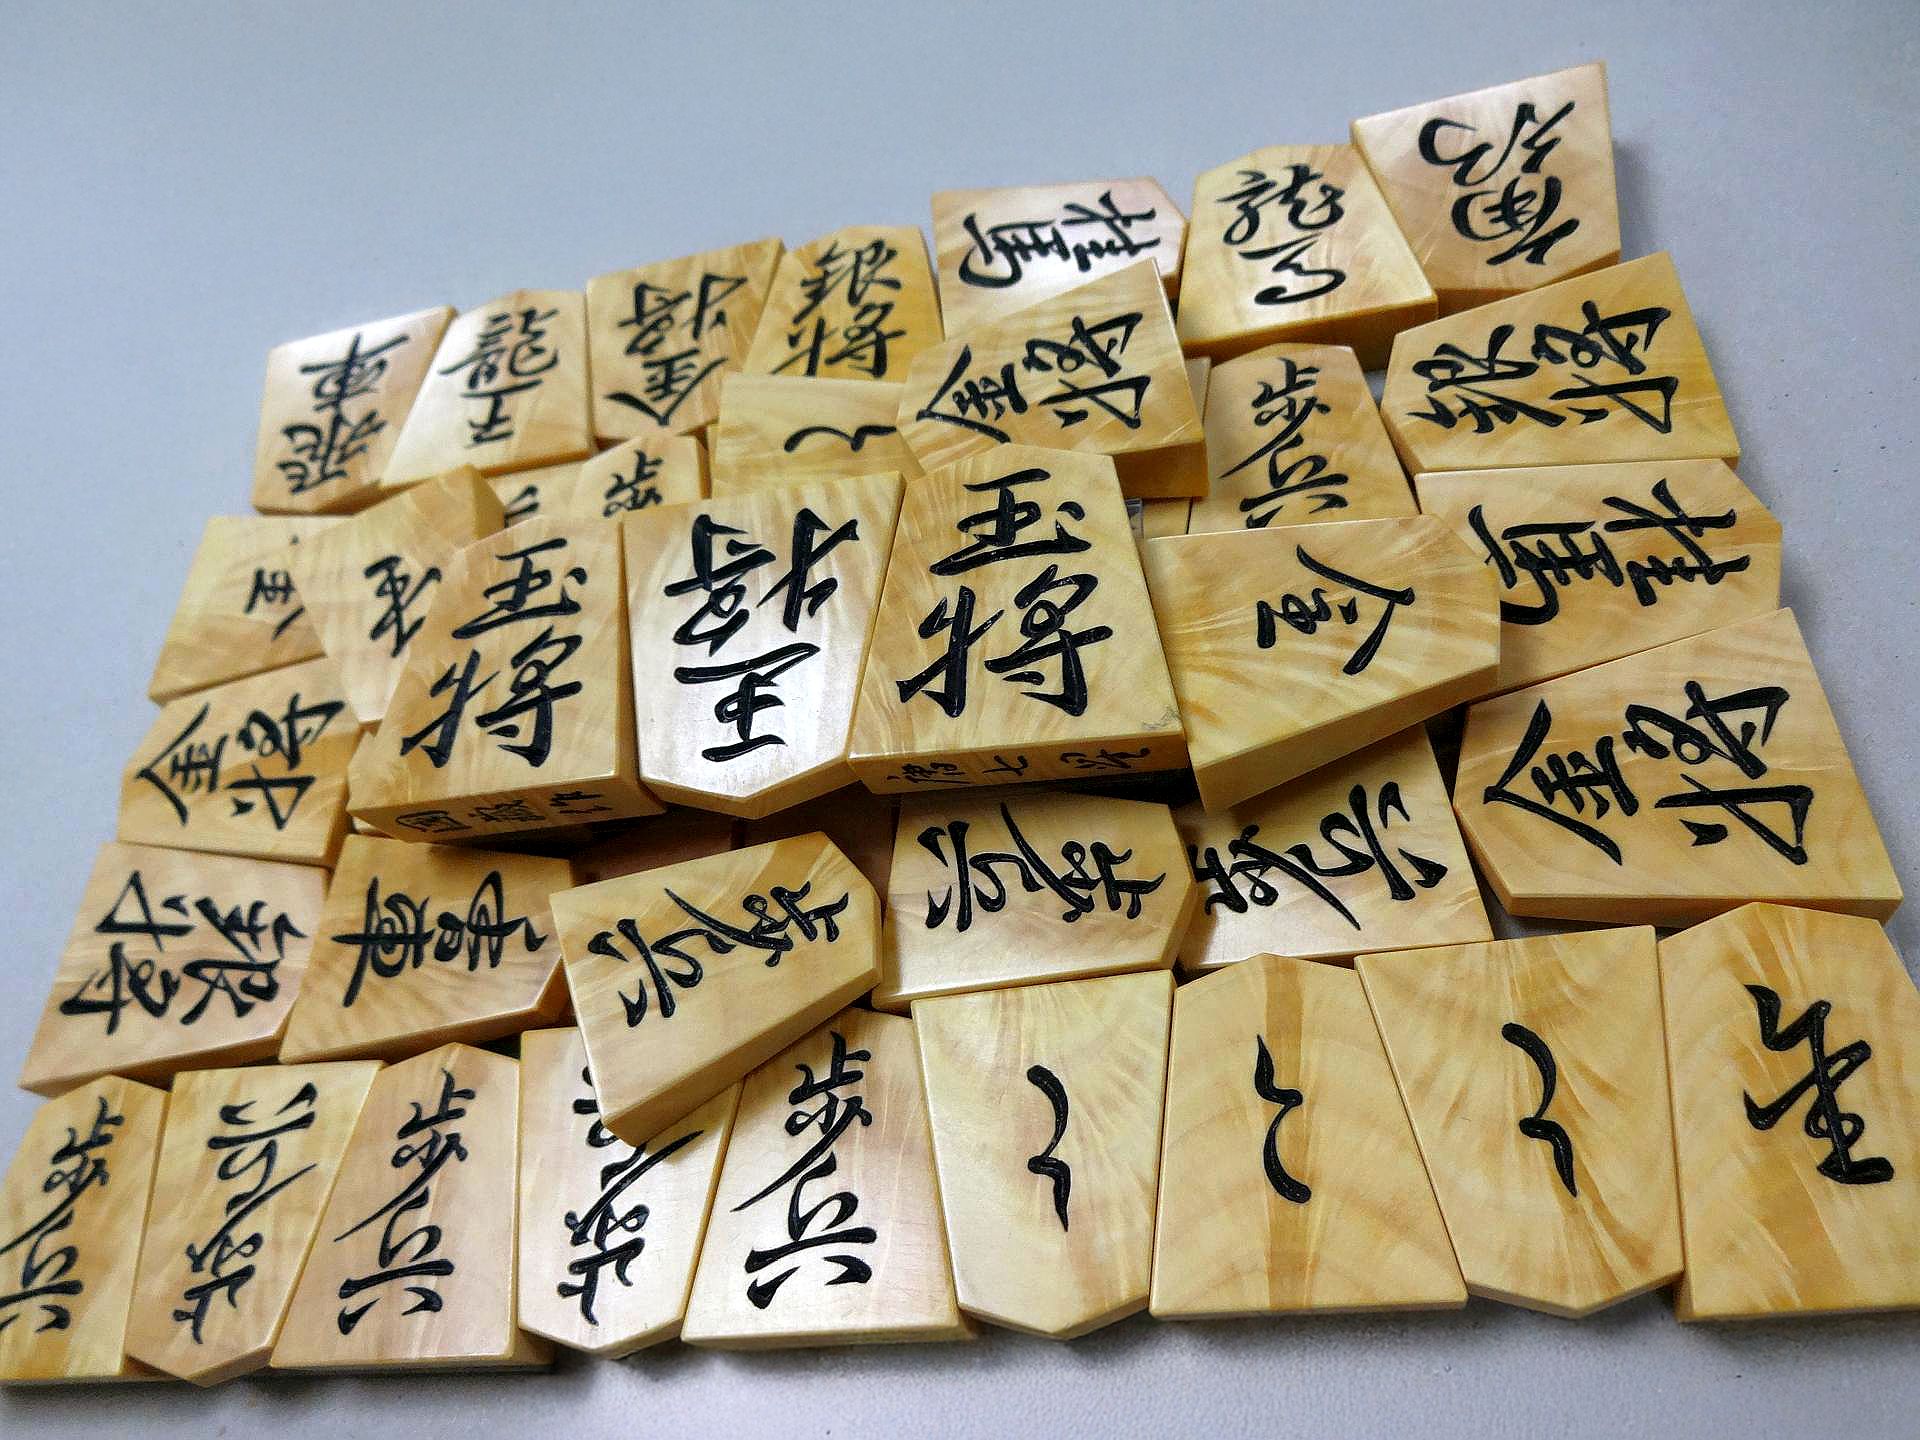 香車
龍馬
桂馬
銀将
金将
龍王
飛車
金将
銀将
歩兵
と
歩
桂馬
玉将
王将
玉将
金
金将
金将
銀将
香車
歩兵
歩兵
歩兵
歩兵
歩兵
歩兵
歩兵
と
と
と